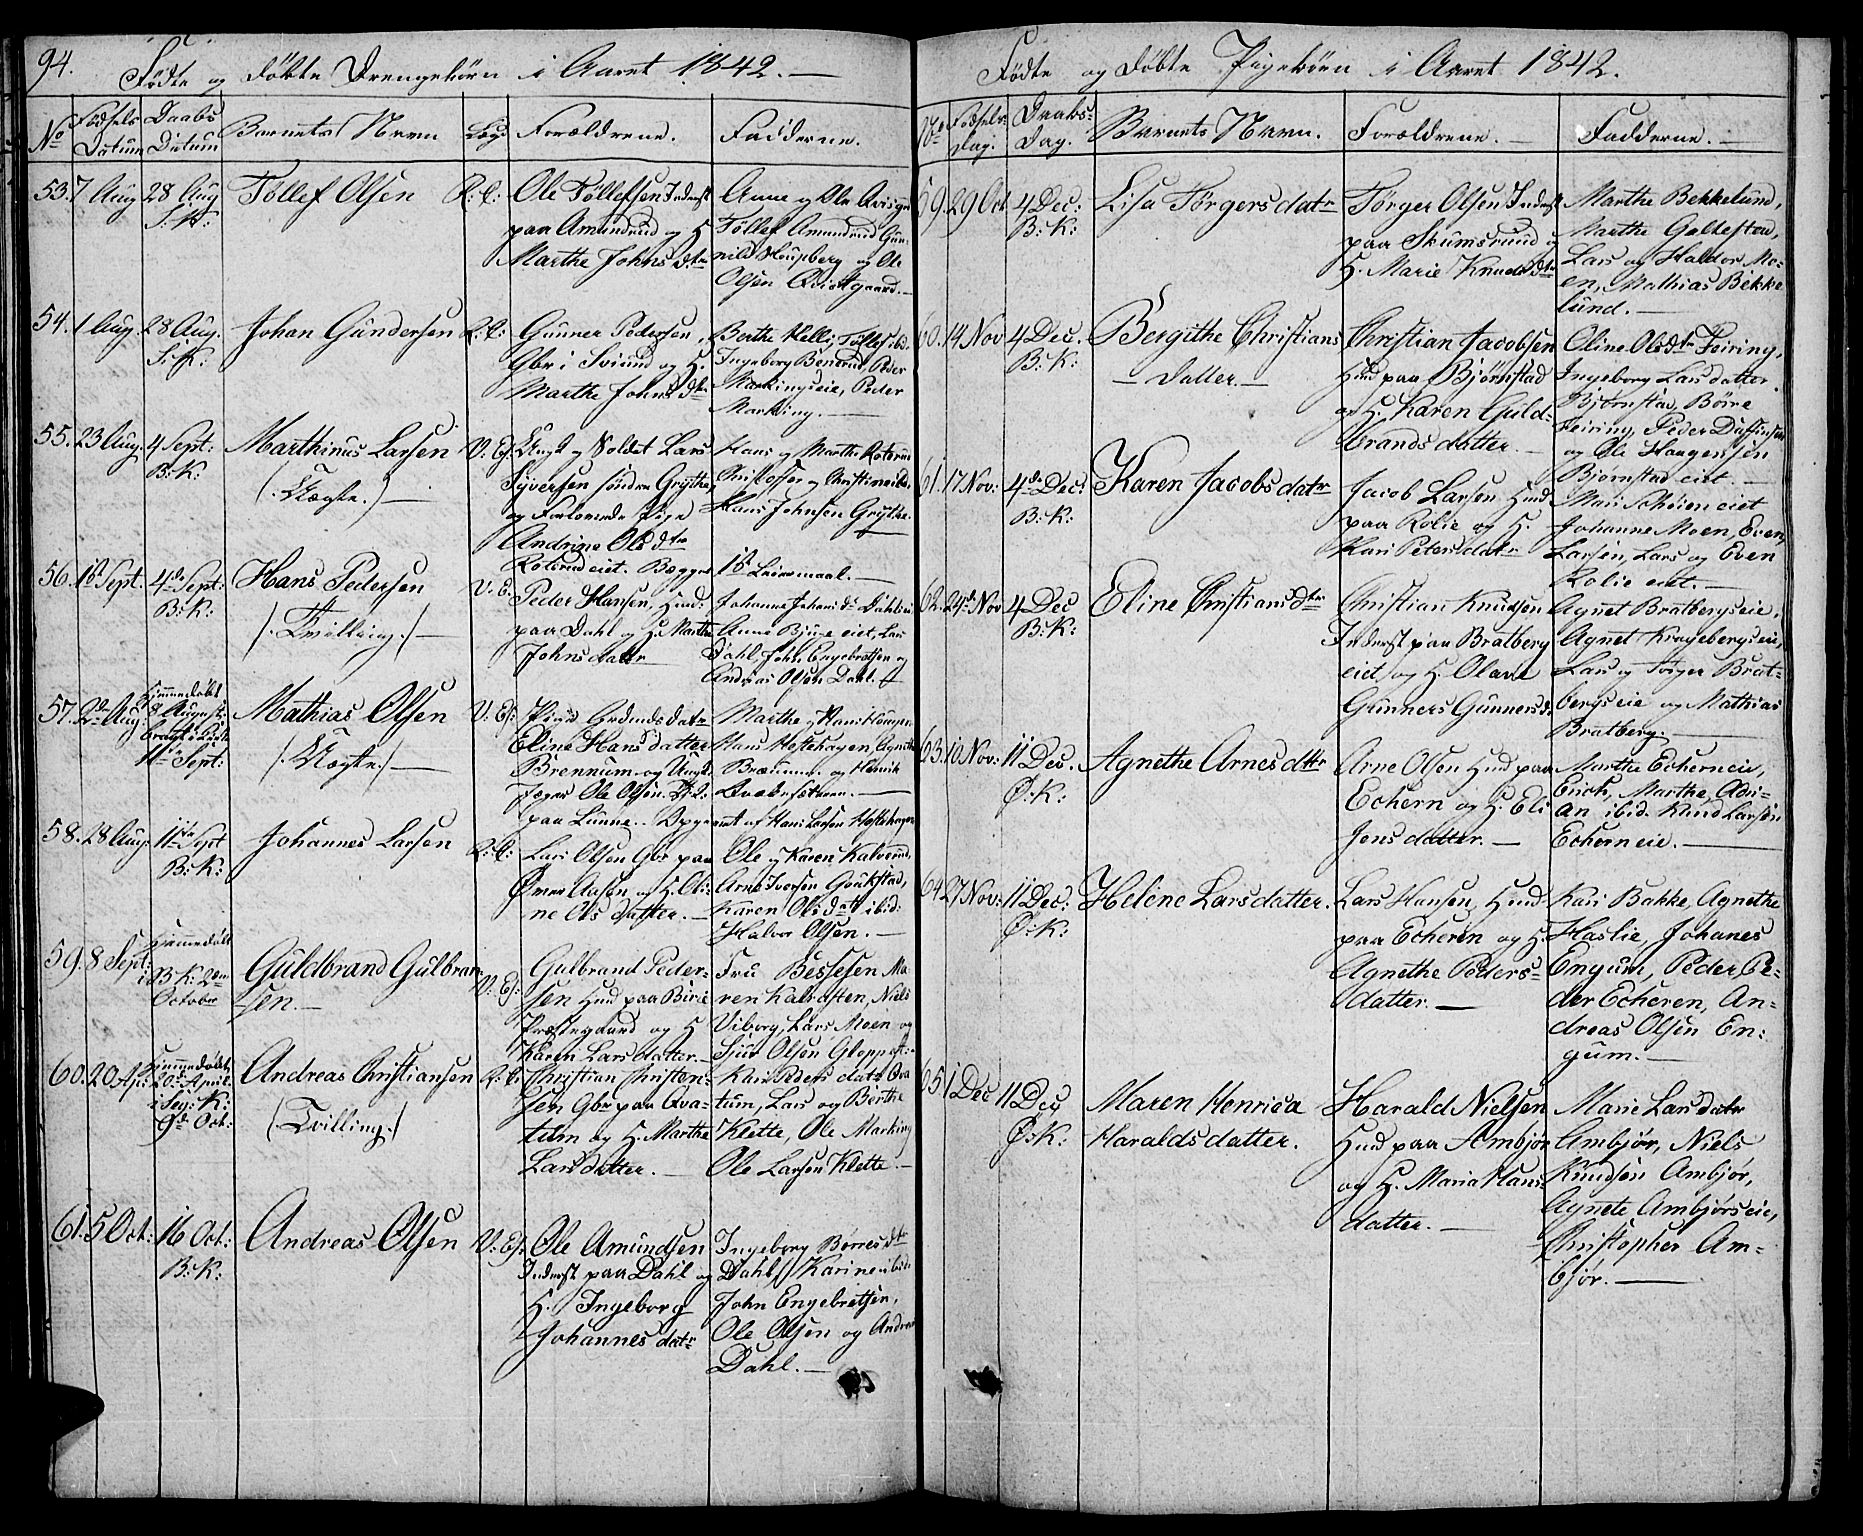 94.
Födte og döbte Drengebörn i Aaret 1842. —
No Födsels Datum
Daabs Datum
Barnets Navn
Forældrene.
Fadderne.
53. 7 Aug 28 Aug
Tollef Olsen
Ole Töllefsen Inderst
paa Amundrud og H.
Marthe Johns dtr
Anne og Ole
Tollef Amundrud
og Ole
Olsen Qvistgaard. —
54. 1 Aug. 28 Aug.
Johan Gundersen
Gunner Pedersen,
Gbr i og H.
Marthe Johns dtr
Berthe
Ingeborg Peder
Markingseie, Peder
Marking. —
55. 23 Aug. 4 Sept:
B: K:
Marthinus Larsen
(: Uægte. :) —
V. Ef: Ungk og Soldat Lars
Syversen söndre Grythe,
og Pige
Andrine Ols dtr
eiet. Begges
Hans og Marthe
Christoffer og
Hans Johnsen Grythe.
1ste Leiermaal. —
56. 1st Sept. 4de Sept:
B: K:
Hans Pedersen
(: Tvilling :) —
Peder Hansen, Hmd:
paa Dahl og H. Marthe
Johns datter
Johanne Johans dr
Anne eiet, Lars
Dahl, John Engebretsen og
Andreas Olsen Dahl.
57. 2den Aug. Hjemmedöbt
8 August:
11te Sept:
Mathias Olsen
(: Uægte :) —
V: Ef: Pigen
Eline Hans datter
Brennum og Ungk.
Jæger Ole Olsen
paa Lunne.
Marthe og Hans
Hans Hoftehagen,
og Henrik
af Hans Larsen Hoftehagen
58. 28 Aug. 11te Sept
B: K:
Johannes Larsen
Lars Olsen Gbr paa
Övre Aasen og H. Oli-
ne Ols datter. —
Ole og Karen Kalverud,
Arne Iversen
Karen Ols datr ibid:
Halvor Olsen. —
59. 8 Sept: Hjemmedöbt
B: K: 2den
October
Guldbrand Gulbran-
sen. —
V: Ef:
Gulbrand Peder-
sen Hmd paa Birie
Præstegaard og H
Karen Lars datter. —
Fru Bessesen Ma-
ren Niels
Viborg, Lars Moen og
Sjur Olsen
60. 20 Apr Hjemmedöbt
20de April
9de Oct:
Andreas Christiansen
(: Tvilling :)
Christian Christen-
sen Gbr paa Qva-
tum og H. Marthe
Lars datter. —
Kari Peders datr Qva-
tum, Lars og Berthe
Klette, Ole Marking
Ole Larsen Klette —
61. 5 Oct: 16 Oct:
B: K:
Andreas Olsen
V: Ef:
Ole Amundsen
Inderst paa Dahl og
H. Ingeborg
Johannes datr
Ingeborg Börres dtr
Dahl, Karine ibid:
John Engebretsen,
Ole Olsen og Andreas
Dahl. —
Födte og döbte Pigebörn i Aaret 1842.
No Födsels-
Dag.
Daabs-
Dag.
Barnets Navn.
Forældrene. —
Fadderne. —
59. 29 Oct 4 Dec:
B: K:
Lisa Törgers datr
Törger Olsen Inderst
paa Skumsrud og
H. Marie Knuds dtr
Marthe Bekkelund,
Marthe Gallestad,
Lars og Haldor Mo-
en, Mathias Bekke
lund. —
60. 14 Nov 4 Dec.
B: K:
Bergithe Christians
— datter —
Christian Jacobsen
Hmd paa Björnstad
og H. Karen Guld-
brands datter. —
Oline Ols dtr Feiring,
Ingeborg Lars datter
Björnstad, Börre
Feiring, Peder
og Ole Haagensen
Björnstad eiet. —
61. 17 Nov: 4de Dec:
B: K:
Karen Jacobs datr
Jacob Larsen Hmd
paa Rolie og H.
Kari Peters datr
Mari eiet
Johanne Moen, Even
Larsen, Lars og Even
Rolie eiet. —
62. 24de Nov 4 Dec
B: K:
Eline Christians dtr
Christian Knudsen
Inderst paa Bratberg
eiet og H. Olava
Gunners Gunners dr
Agnet Bratbergseie,
Agnet Kragebergseie,
Lars og Törger Brat-
bergseie og Mathias
Bratberg. —
63. 10 Nov: 11 Dec.
Ö: K:
Agnethe Arnes dtr
Arne Olsen Hmd paa
Echern og H. Eli
Jens datter. —
Marthe Echerneie,
Erich, Marthe, Adri-
an ibid. Knud Larsen
Echerneie. —
64. 27 Nov: 11 Dec:
Ö: K:
Helene Lars datter.
Lars Hansen, Hmd
paa Echeren og H.
Agnethe Peders-
datter. —
Kari Bakke, Agnethe
Haslie, Johanes
Engum, Peder Pe-
der Echeren, An-
dreas Olsen En-
gum. —
65. 1 Dec 11 Dec
Ö: K:
Maren Henrica
Haralds datter.
Harald Nielsen
Hmd paa Ambjör
og H. Maria Hans-
datter. —
Marie Lars datr
Ambjör, Niels
Knudsen Ambjör,
Agnete Ambjörseie,
Christopher Am-
björ. —